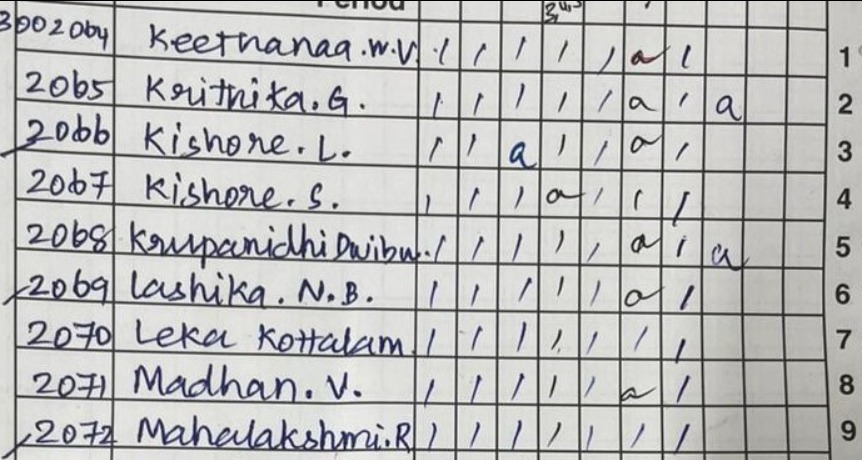 Period
3002064 Keerthanaa.W.V / / / / / a / 1
2065 Krithika.G. / / / / / a / a 2
2066 Kishore.L. / / a / / a / 3
2067 Kishore.S. / / / a / / / 4
2068 Krupanidhi Dwibw. / / / / / a / a 5
2069 Lashika.N.B. / / / / / a / 6
2070 Leka Kottalam / / / / / / / 7
2071 Madhan.V. / / / / / a / 8
2072 Mahalakshmi.R / / / / / / / 9